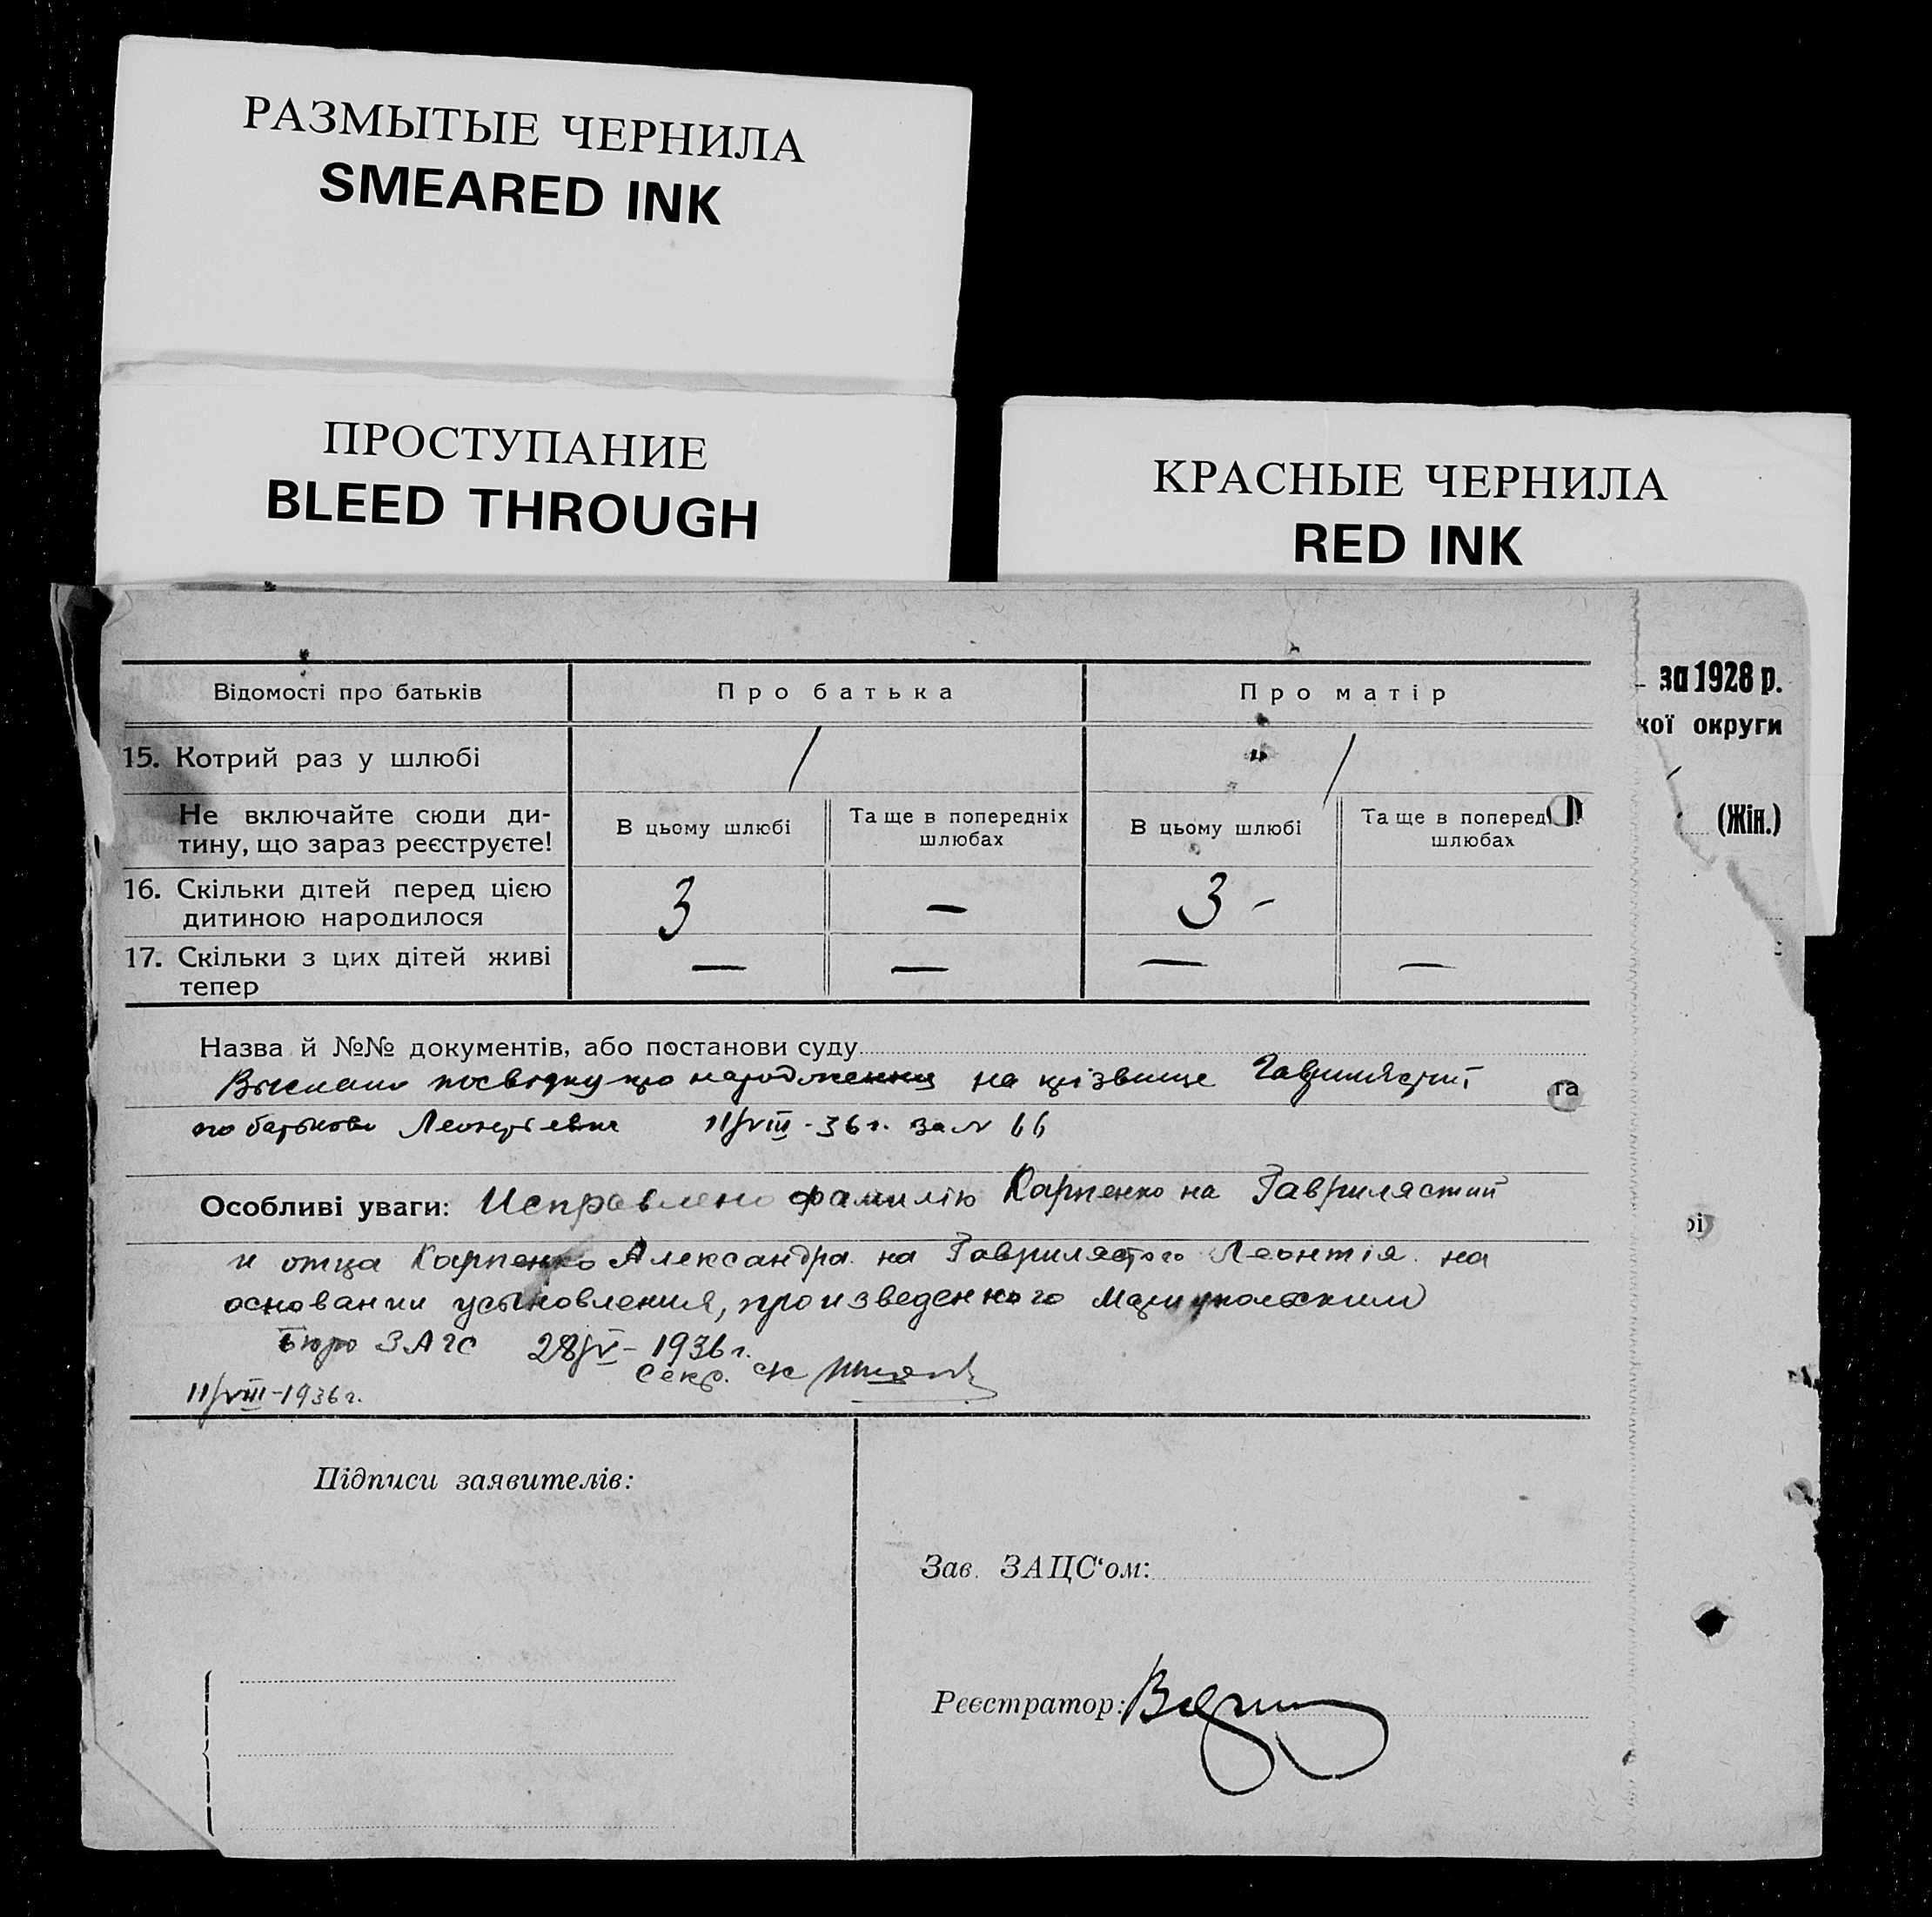 РАЗМЫТЫЕ ЧЕРНИЛА
SMEARED INK
ПРОСТУПАНИЕ
BLEED THROUGH
КРАСНЫЕ ЧЕРНИЛА
RED INK
за 1928 р.
кої округи
(Жін.)
Відомості про батьків
Про батька
Про матір
15. Котрий раз у шлюбі
/
" /
Не включайте сюди ди-
тину, що зараз реєструєте!
В цьому шлюбі
Та ще в попередніх
шлюбах
В цьому шлюбі
Та ще в поперед
шлюбах
16. Скільки дітей перед цією
дитиною народилося
3
—
3 -
17. Скільки з цих дітей живі
тепер
—
—
—
—
Назва й №№ документів, або постанови суду
посвідку про народження на прізвище Гаврилястий
та
по батькові 11/VIII-36 г. за N 66
Особливі уваги: Исправлено фамилію Карпенко на Гаврилястий
и отца Карпенко Александра на Гаврилястого Леонтія на
основании усыновления, произведенного Мариупольским
бюро ЗАГС 28/V-1936 г.
Секр.
11/VIII-1936 г.
Підписи заявителів:
Зав. ЗАЦС'ом:
Реєстратор: